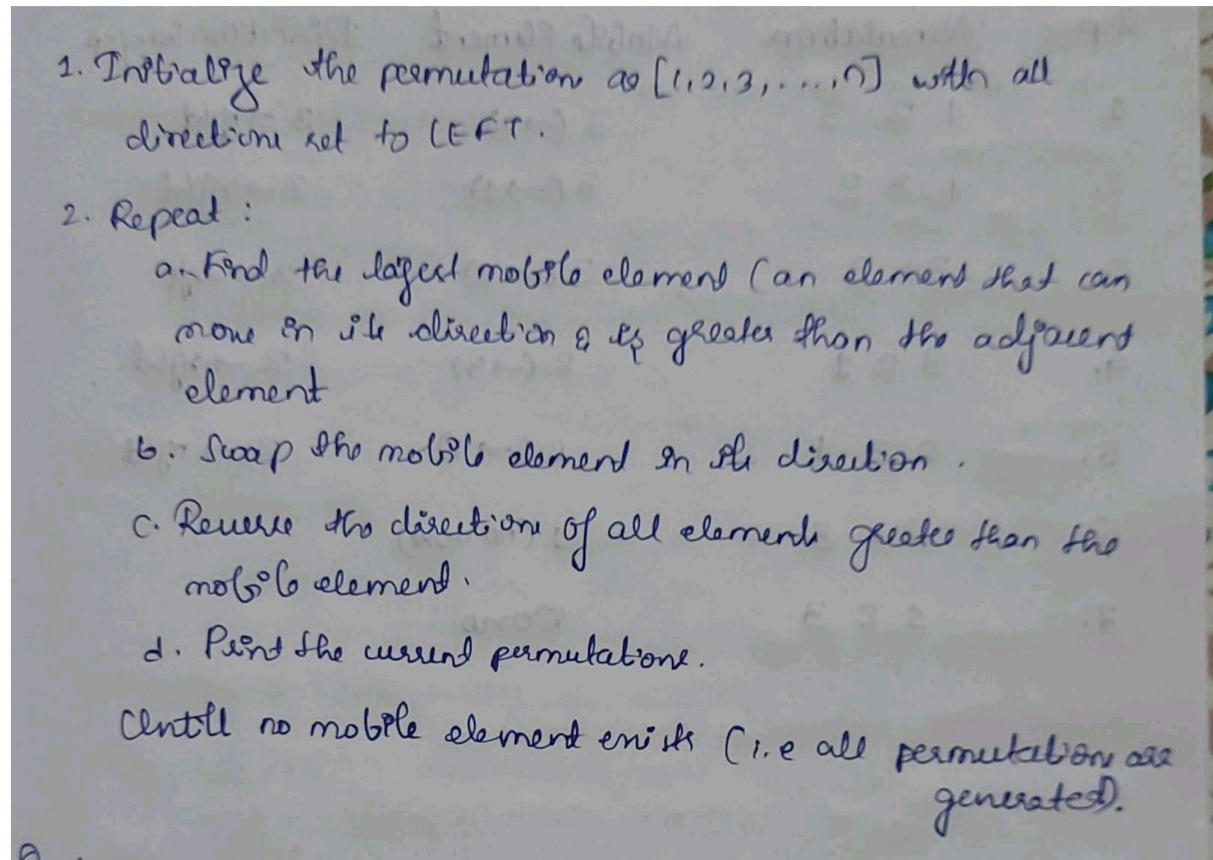 1. Initialize the permutation as [1,2,3,....,n] with all
directions set to LEFT.
2. Repeat :
a. Find the lagest mobile element (an element that can
move in its direction & is greater than the adjacent
element
b. Swap the mobile element in its direction.
c. Reverse the directions of all elements greater than the
mobile element.
d. Print the current permutations.
Untill no mobile element exists (i.e all permutation are
generated).